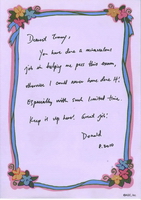 Dearest Tommy,
You have done a miraculous
job in helping me pass this exam,
otherwise I could never have done it!
Especially with such limited time.
Keep it up here! Good job!
Donald